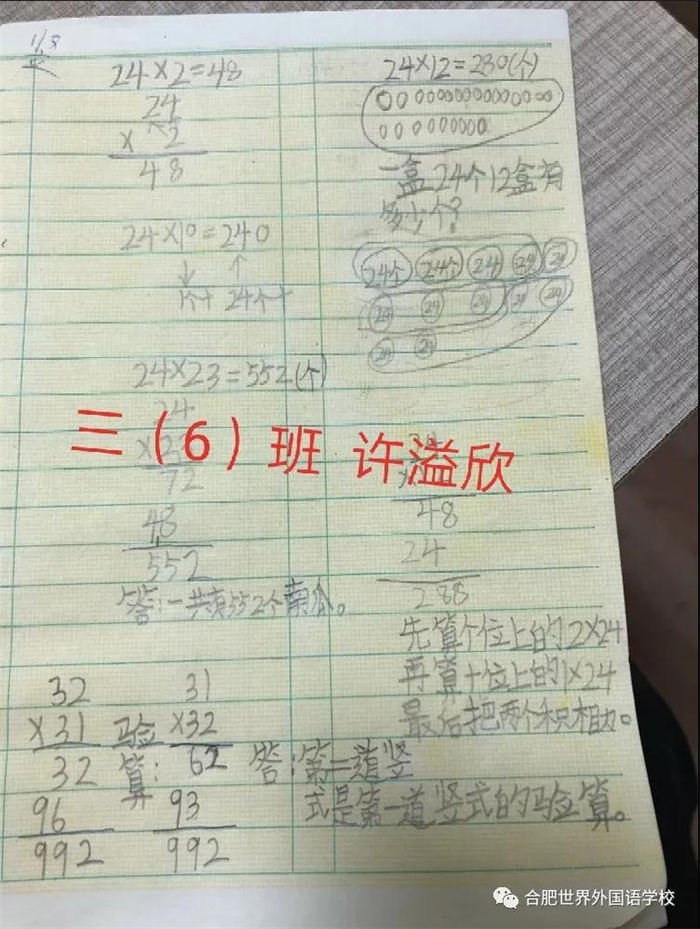 24×2=48
24
× 2
48
24×10=240
24×23=552(个)
24
72
48
552
答:一共有552个南瓜。
32
×31
32
96
992
验算:
31
×32
62
93
992
24×12=230(个)
一盒24个12盒有
多少个?
24个 24个 24 24 24
24 24 24 24 24
24 24
48
24
288
先算个位上的2×24
再算十位上的1×24
最后把两个积相加。
答:第二道竖
式是第一道竖式的验算。
三(6)班 许溢欣
合肥世界外国语学校